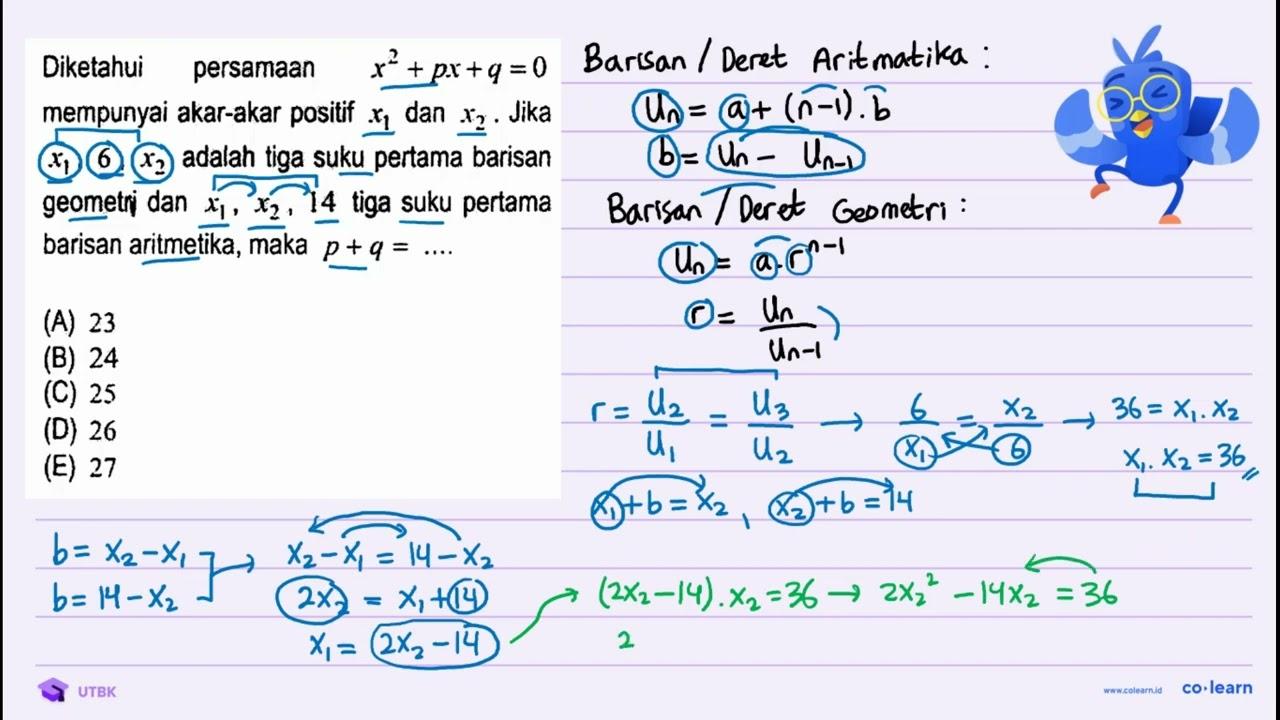 Diketahui persamaan x² + px + q = 0
mempunyai akar-akar positif x₁ dan x₂. Jika
x₁ 6 x₂ adalah tiga suku pertama barisan
geometri dan x₁, x₂, 14 tiga suku pertama
barisan aritmetika, maka p + q = ....
(A) 23
(B) 24
(C) 25
(D) 26
(E) 27
Barisan / Deret Aritmatika :
Uₙ = a + (n-1) . b
b = Uₙ - Uₙ₋₁
Barisan / Deret Geometri :
Uₙ = a . rⁿ⁻¹
r = Uₙ / Uₙ₋₁
r = U₂/U₁ = U₃/U₂ → 6/x₁ = x₂/6 → 36 = x₁ . x₂
x₁ . x₂ = 36
x₁ + b = x₂ , x₂ + b = 14
b = x₂ - x₁
b = 14 - x₂
→ x₂ - x₁ = 14 - x₂
2x₂ = x₁ + 14
x₁ = 2x₂ - 14
→ (2x₂ - 14) . x₂ = 36 → 2x₂² - 14x₂ = 36
2
UTBK
www.colearn.id co·learn